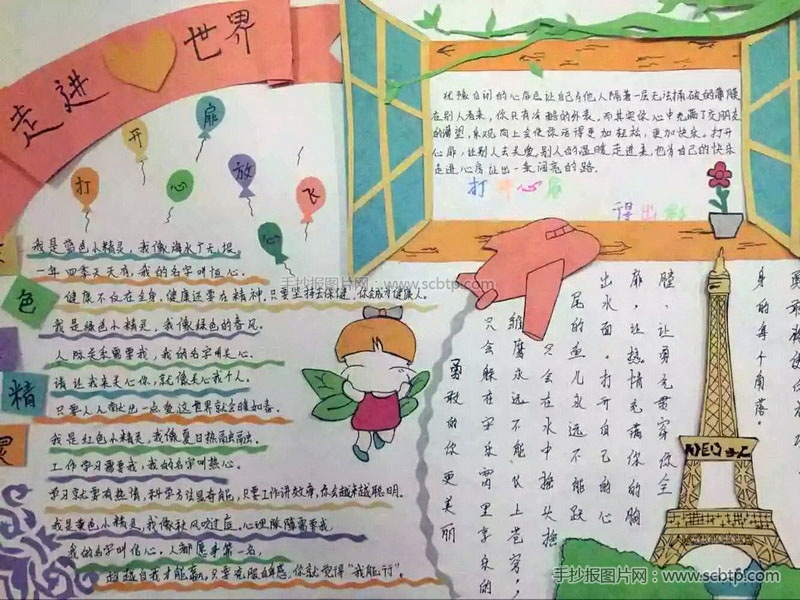 走进世界
打开心扉
放飞心
我是蓝色小精灵，我像海水广无垠。
一年四季天天有，我的名字叫恒心。
健康不仅在全身，健康还要有精神，只要坚持去保健，你会成为健康人。
我是绿色小精灵，我像绿色的春风。
人际关系需要我，我的名字叫关心。
请让我来关心你，就像关心我个人。
只要人人献出一点爱，这世界就会暖如春。
我是红色小精灵，我像夏日热融融。
工作学习需要我，我的名字叫热心。
学习就要有热情，科学方法显奇能，只要工作讲效率，你会越来越聪明。
我是黄色小精灵，我像秋风吹过庭。心理障碍需要我，
我的名字叫信心。人都愿争第一名，
超越自我才能赢，只要克服自卑感，你就觉得“我能行”。
色
精
灵
忧郁自闭的心扉总让自己与他人隔着一层无法捅破的薄膜
在别人看来，你只有冷酷的外表，而其实你心中充满了交朋友
的渴望，乐观向上会使你活得更加轻松，更加快乐。打开
心扉，让别人去关爱，别人的温暖走进来，也有自己的快乐
打开心扉
身的每个角落。
只会在水中摇头摇
尾的鱼儿永远不能跃
出水面。打开自己的心
扉，让热情充满你的胸
膛，让勇充贯穿你全
勇敢的你更美丽
只会躲在窝里享乐的
雏鹰永远不能飞上苍穹，
手抄报图片网：www.scbtp.com
手抄报图片网：www.scbtp.com